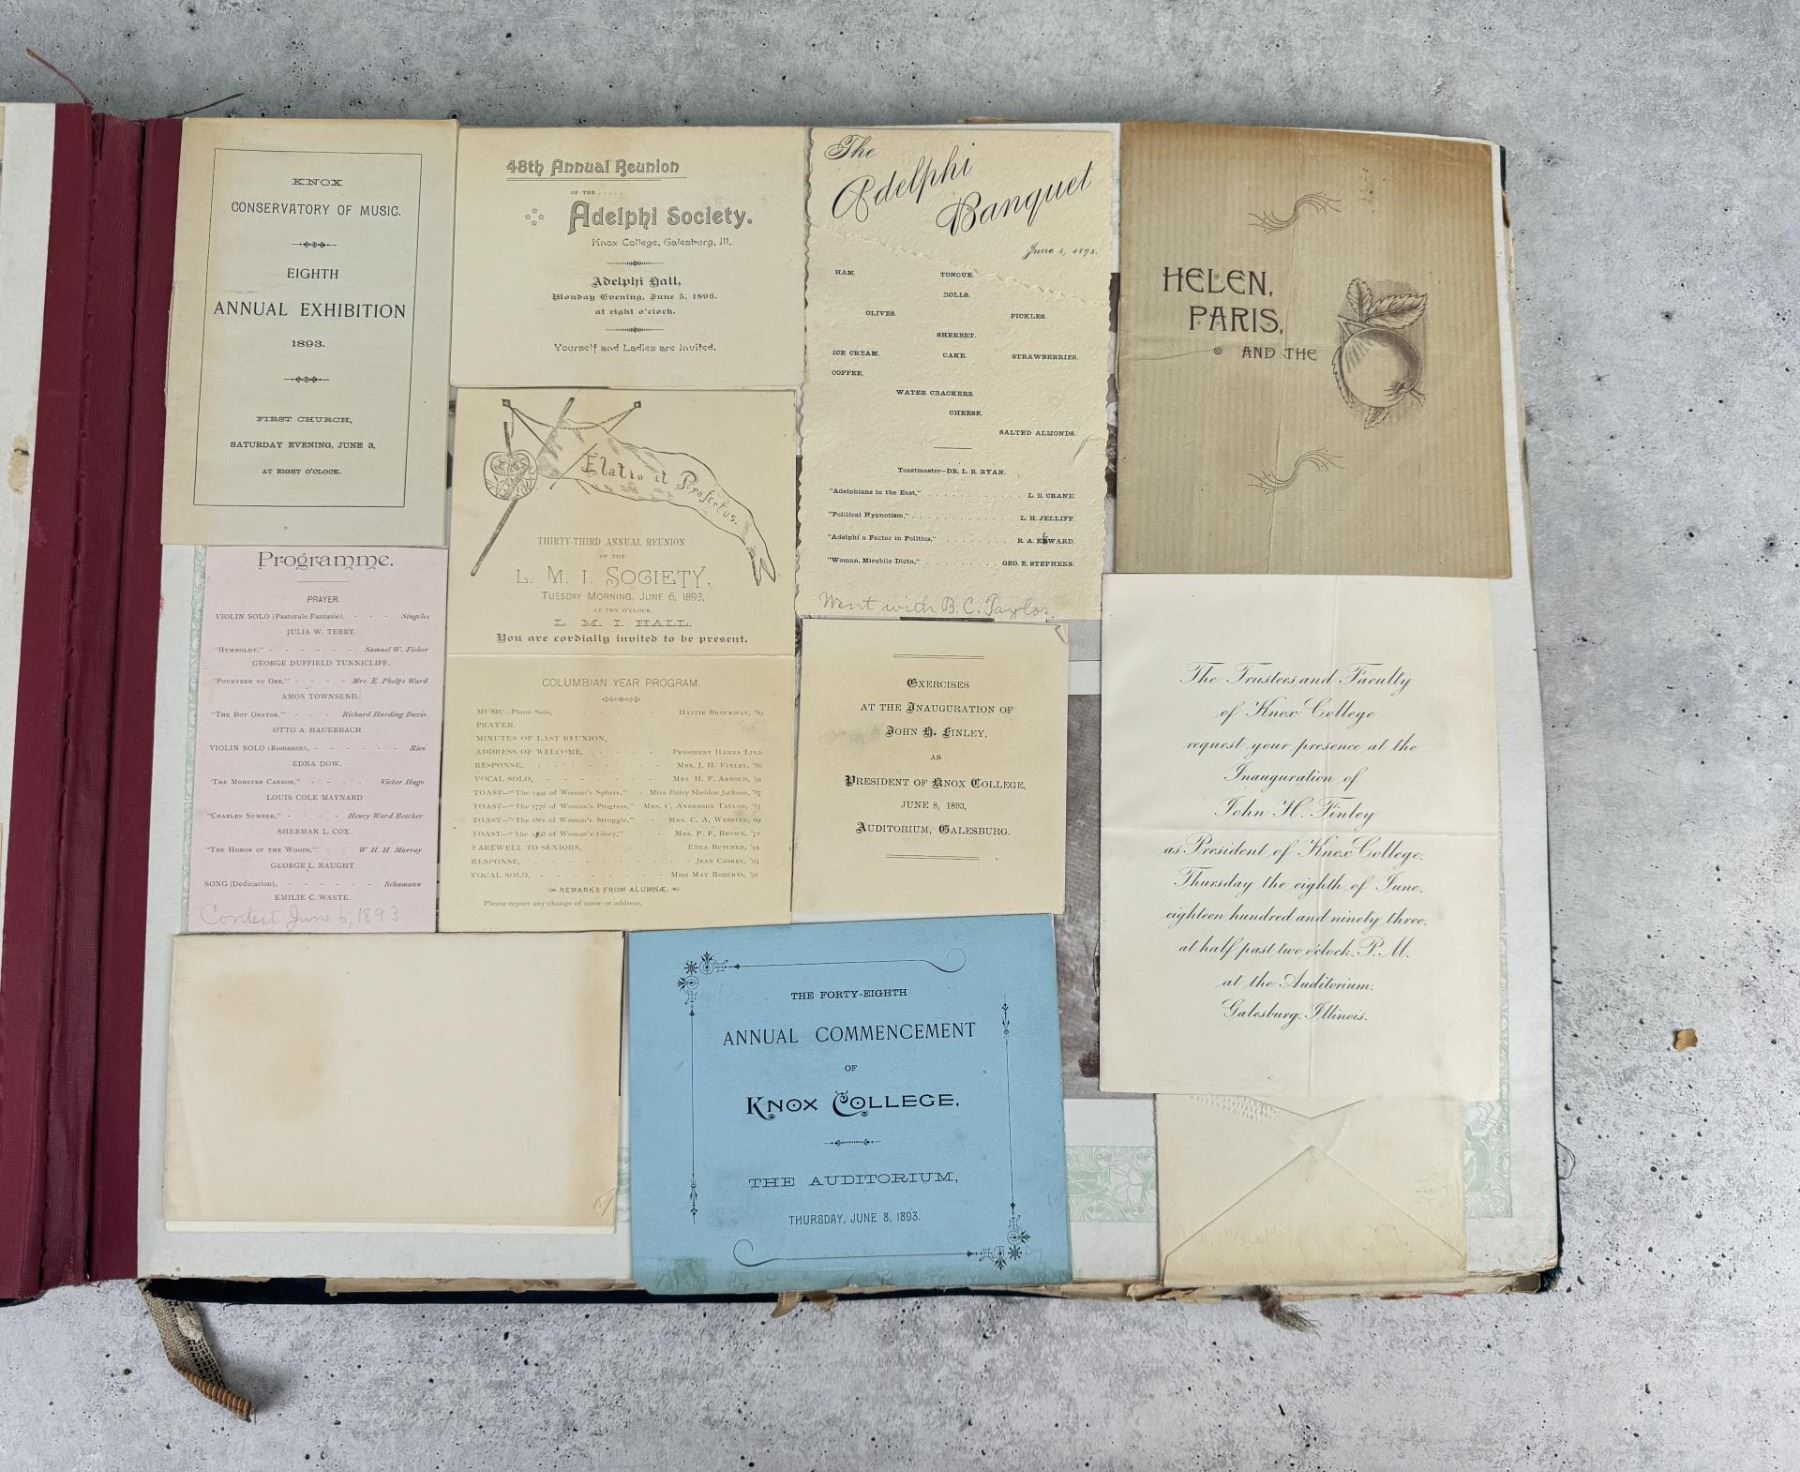 KNOX
CONSERVATORY OF MUSIC.
EIGHTH
ANNUAL EXHIBITION
1893.
FIRST CHURCH,
SATURDAY EVENING, JUNE 3,
AT EIGHT O'CLOCK.
48th Annual Reunion
OF THE .....
Adelphi Society.
Knox College, Galesburg, Ill.
Adelphi Hall,
Monday Evening, June 5, 1893.
at eight o'clock.
Yourself and Ladies are Invited.
The
Adelphi
Banquet
June 5, 1893.
HAM. TONGUE.
ROLLS.
OLIVES. PICKLES.
SHERBET.
ICE CREAM. CAKE. STRAWBERRIES.
COFFEE.
WATER CRACKERS.
CHEESE.
SALTED ALMONDS.
Toastmaster—DR. L. R. RYAN.
"Adelphians in the East," L. E. CRANE.
"Political Hypnotism," L. H. JELLIFF.
"Adelphi a Factor in Politics," R. A. WARD.
"Woman, Mirabile Dictu," GEO. E. STEPHENS.
Went with B. C. Taylor
HELEN,
PARIS,
AND THE
Programme.
PRAYER.
VIOLIN SOLO (Pastorale-Fantasie), - - - Singelee
JULIA W. TERRY
"HUMBOLDT," - - - - - - Samuel W. Fisher
GEORGE DUFFIELD TUNNICLIFF.
"FOURTEEN TO ONE," - - - - Mrs. E. Phelps Ward
AMOS TOWNSEND.
"THE BOY ORATOR," - - - Richard Harding Davis
OTTO A. HAUERBACH
VIOLIN SOLO (Romance), - - - - - - Ries
EDNA DOW.
"THE MONSTER CANNON," - - - - Victor Hugo
LOUIS COLE MAYNARD
"CHARLES SUMNER," - - - - Henry Ward Beecher
SHERMAN L. COX.
"THE HOROS OF THE WOODS," - - W. H. H. Murray
GEORGE L. NAUGHT.
SONG (Dedication), - - - - - - Schumann
EMILIE C. WASTE.
Contest June 6, 1893
Elatio et Profectus.
THIRTY-THIRD ANNUAL REUNION
OF THE
L. M. I. SOCIETY,
TUESDAY MORNING, JUNE 6, 1893,
AT TEN O'CLOCK.
L. M. I. HALL.
You are cordially invited to be present.
COLUMBIAN YEAR PROGRAM.
MUSIC—Piano Solo, - - - HATTIE BROCKWAY,
PRAYER.
MINUTES OF LAST REUNION,
ADDRESS OF WELCOME, - - - PRESIDENT HANNA LIND
RESPONSE, - - - MRS. J. H. FINLEY,
VOCAL SOLO, - - - MRS. H. F. ARNOLD,
TOAST—"The 1492 of Woman's Sphere," - Miss Daisy Sheldon Jackson,
TOAST—"The 1776 of Woman's Progress," MRS. ANDERSEN TAYLOR,
TOAST—"The 1861 of Woman's Struggle," - MRS. C. A. WEBSTER,
TOAST—"The of Woman's Glory," - MRS. P. F. BROWN,
FAREWELL TO SENIORS, - - - ETHA BUTCHER,
RESPONSE, - - - JEAN CASKEY,
VOCAL SOLO, - - - MISS MAY ROBERTS,
REMARKS FROM ALUMNÆ.
Please report any change of name or address.
EXERCISES
AT THE INAUGURATION OF
JOHN H. FINLEY,
AS
PRESIDENT OF KNOX COLLEGE,
JUNE 8, 1893,
AUDITORIUM, GALESBURG.
The Trustees and Faculty
of Knox College
request your presence at the
Inauguration of
John H. Finley
as President of Knox College.
Thursday the eighth of June,
eighteen hundred and ninety three,
at half past two o'clock, P. M.
at the Auditorium.
Galesburg, Illinois.
THE FORTY-EIGHTH
ANNUAL COMMENCEMENT
OF
KNOX COLLEGE,
THE AUDITORIUM,
THURSDAY, JUNE 8, 1893.